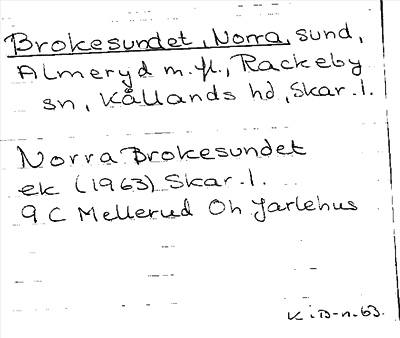 Brokesundet, Norra, sund,
Almeryd m.fl., Rackeby
sn, Kållands hd, Skar.l.
Norra Brokesundet
ek (1963) Skar.l.
9 C Mellerud Öh Jarlehus
K:B-n.63.